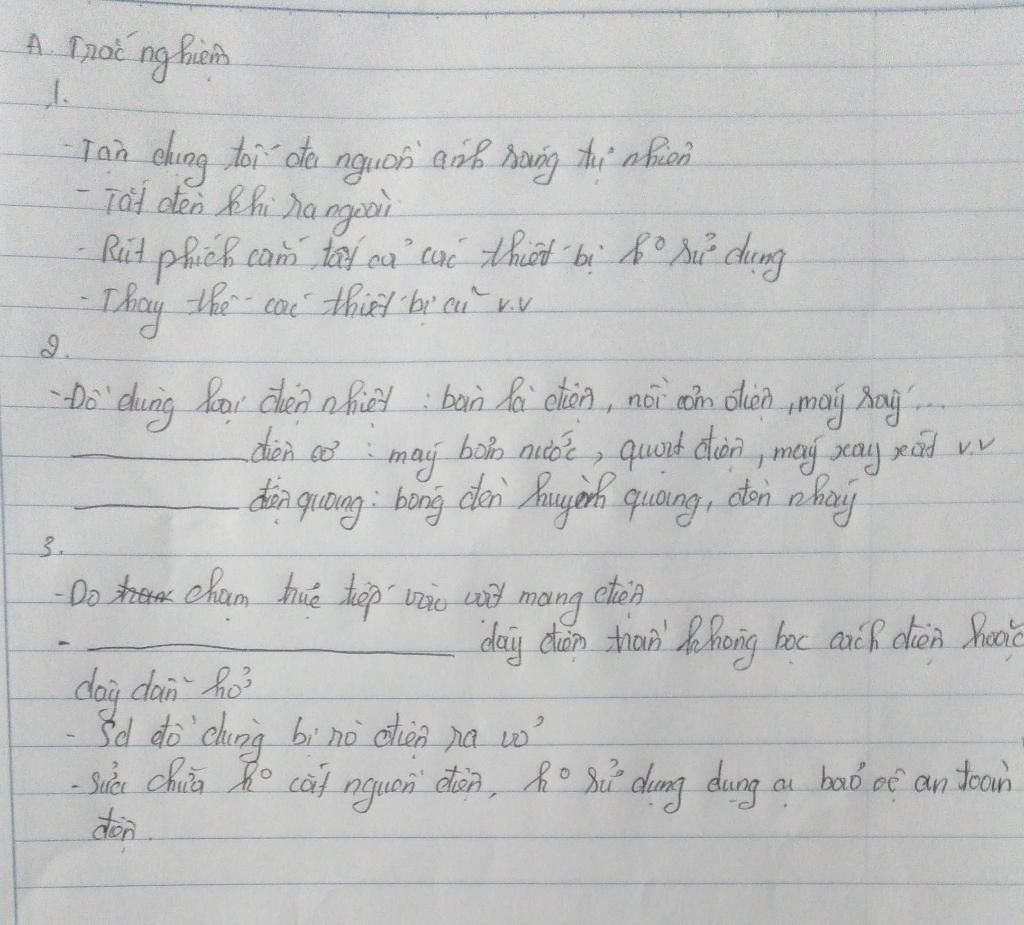 A. Trắc nghiệm
1.
- Tận dụng tối đa nguồn ánh sáng tự nhiên
- Tắt đèn khi ra ngoài
- Rút phích cắm tất cả các thiết bị k° sử dụng
- Thay thế các thiết bị cũ v.v
2.
- Đồ dùng loại điện nhiệt : bàn là điện, nồi cơm điện, máy sấy ...
____________ điện cơ : máy bơm nước, quạt điện, máy xay xát v.v
____________ điện quang : bóng đèn huỳnh quang, đèn nháy
3.
- Do chạm trực tiếp vào vật mang điện
- ____________ dây điện trần không bọc cách điện hoặc
dây dẫn hở
- Sd đồ dùng bị rò điện ra vỏ
- Sửa chữa k° cắt nguồn điện, k° sử dụng dụng cụ bảo vệ an toàn
điện.